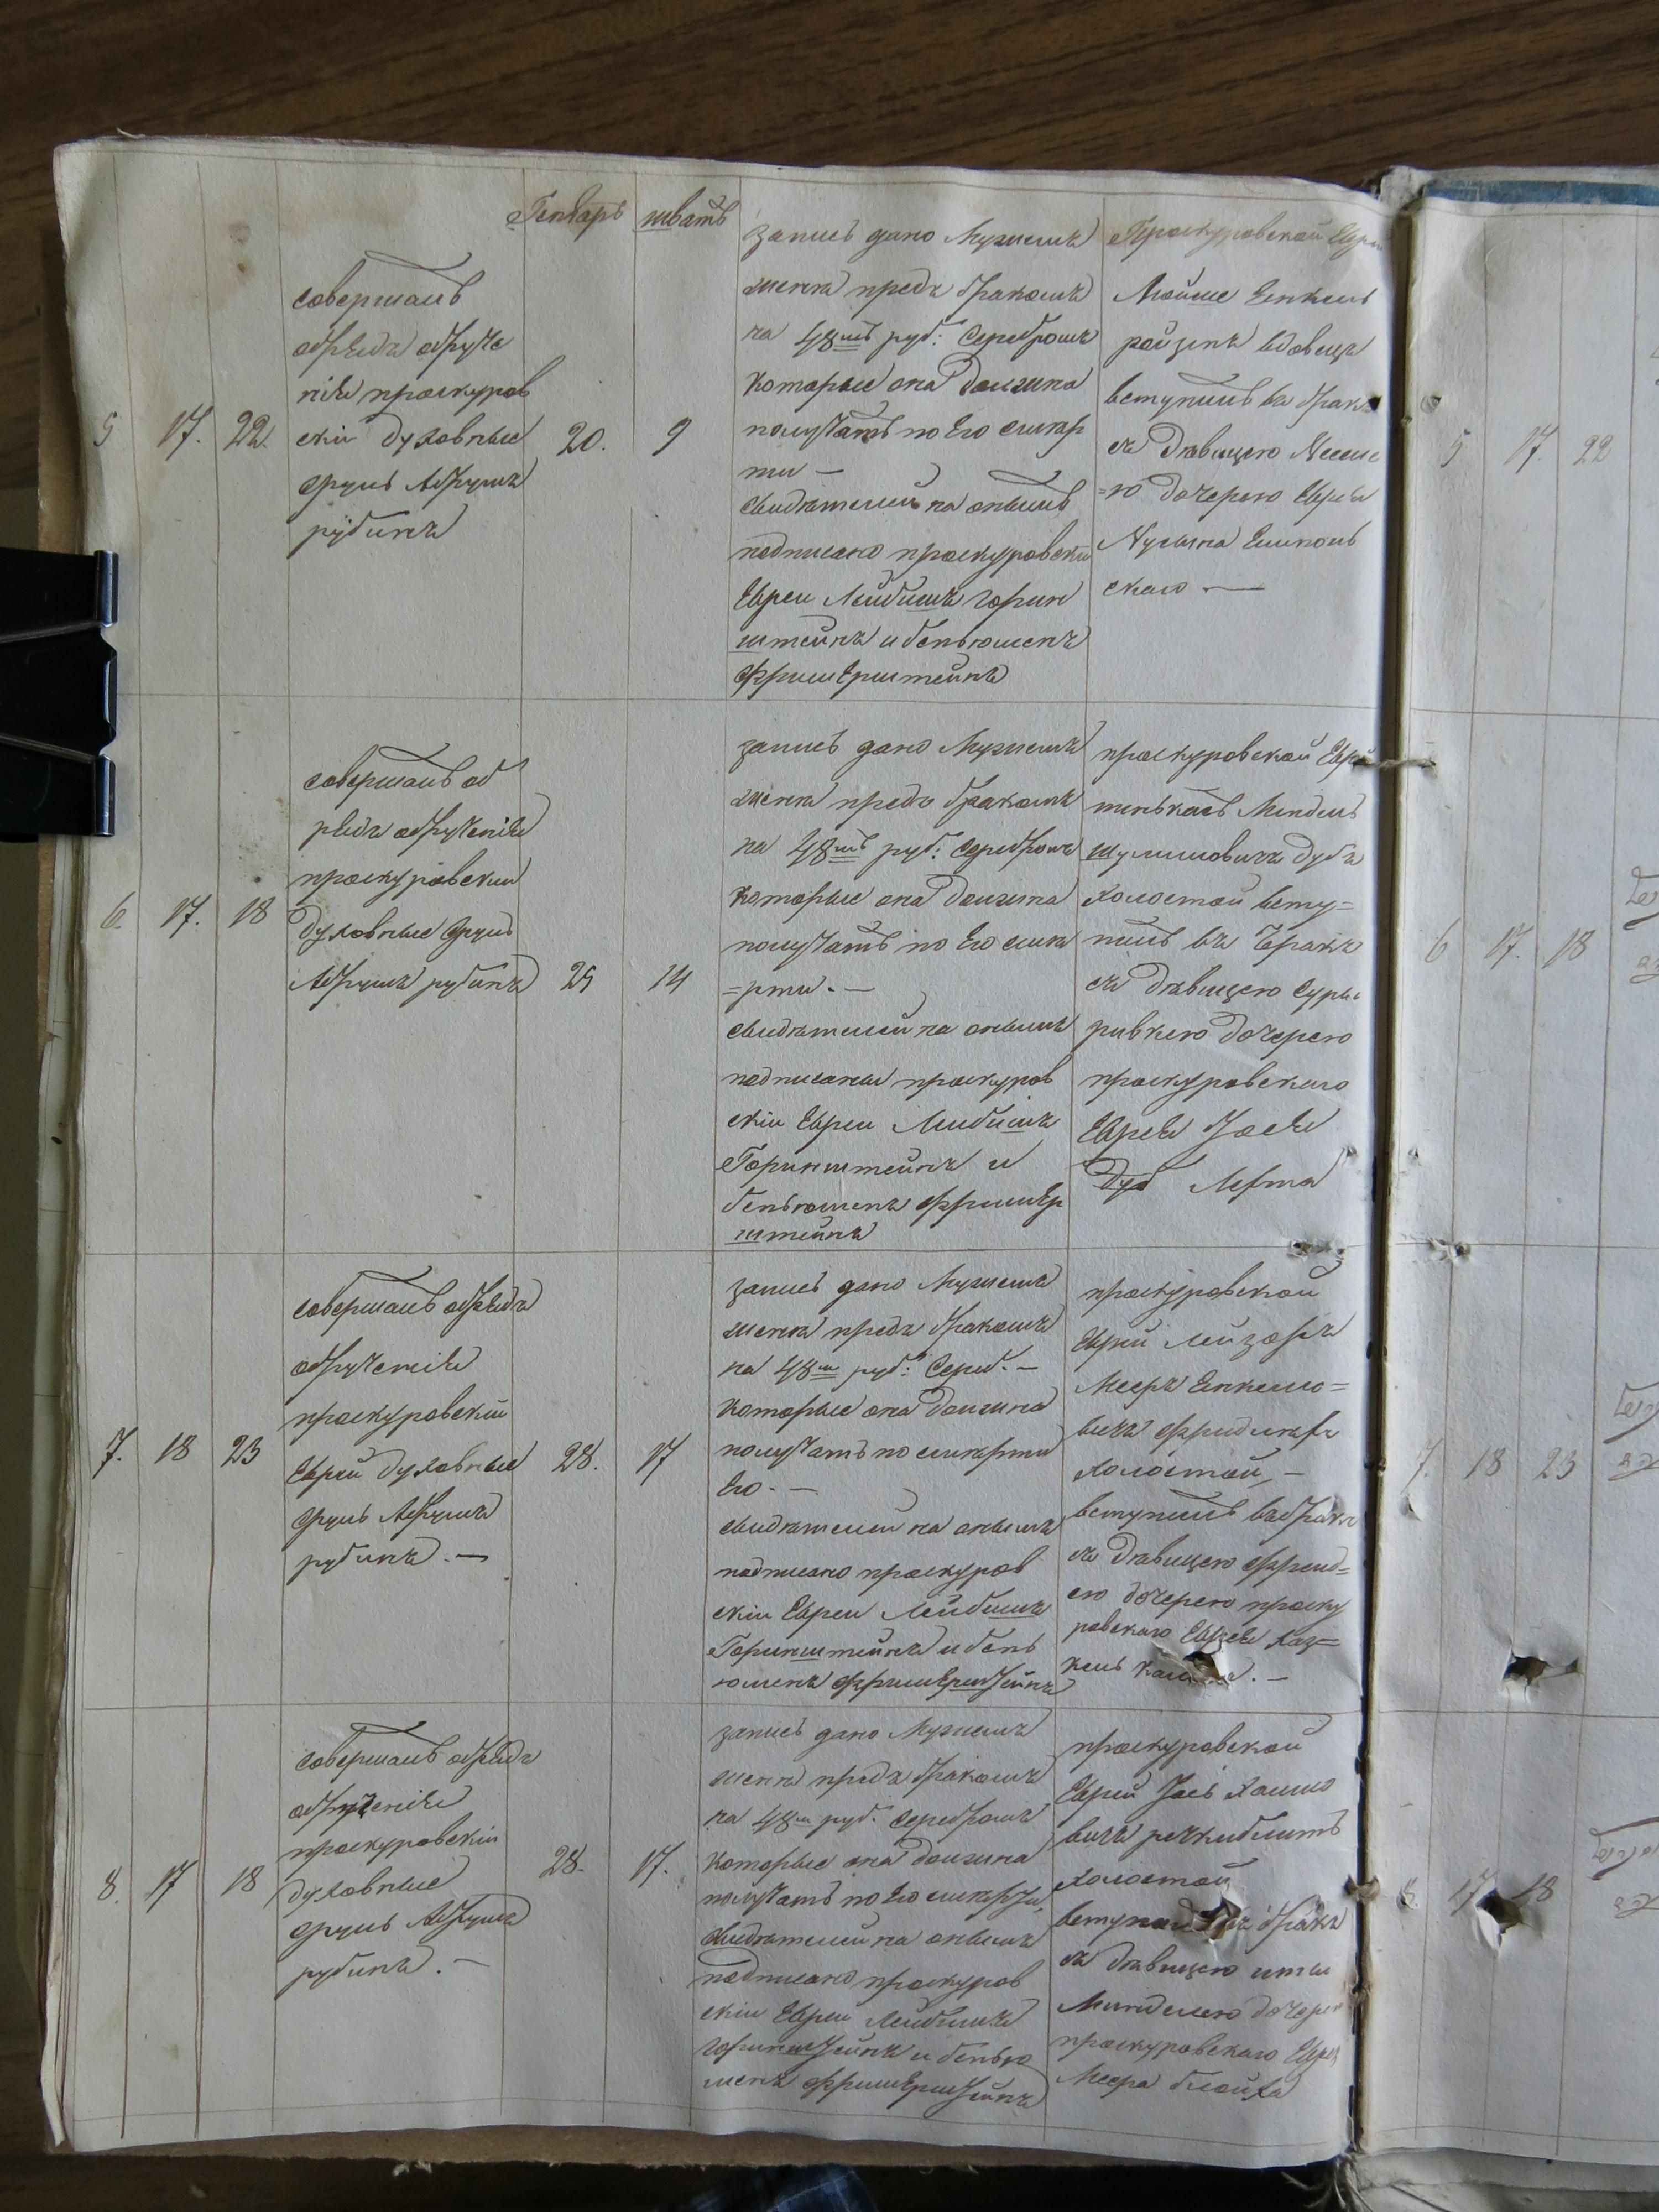 Генварь шватъ
5 17. 22.
совершалъ
обрядъ обруче
нія проскуров
скій духовные
Сруль Абрумъ
рубинъ
20. 9
запись дано Мужемъ
жена предъ бракомъ
на 48мъ руб: Серебромъ
которые она должна
получать по Его смер
ти —
свидѣтелемъ на онымъ
подписано проскуровскіи
Евреи Лейбишъ горин
штейнъ и беньюменъ
Фришерштейнъ
Проскуровской Евреи
Мойше Енкель
ройзенъ вдовецъ
вступилъ въ бракъ
съ дѣвицею
=ю дочерею Еврея
скаго —
5 17. 22
6. 17. 18
совершалъ об
рядъ обрученія
проскуровскіи
духовные Сруль
Абрумъ рубинъ
25 14
запись дано Мужемъ
жена предъ бракомъ
на 48мъ руб: Серебромъ
которые она должна
получать по Его смѣ
=рти. —
свидѣтелей на онымъ
подписаны проскуров
скіи Евреи Лейбишъ
Горинштейнъ и
беньюменъ Фришер
штейнъ
проскуровской Еврей
Мендель
шулимовичъ дубъ
холостой всту=
пилъ въ бракъ
съ дѣвицею Суры
ривкею дочерею
проскуровскаго
Еврея Іося
Дуб
6 17. 18
7. 18 23
совершалъ обрядъ
обрученія
проскуровскій
Еврей духовные
Сруль Абрумъ
рубинъ. —
28. 17
запись дано Мужемъ
жена предъ бракомъ
на 48м руб: Сереб. —
которые она должна
получать по смѣрти
Его. —
свидѣтелей на онымъ
подписано проскуров
скіи Евреи Лейбишъ
Горинштейнъ и бень
юменъ Фришерштейнъ
проскуровской
Еврей Лейзоръ
Мееръ Енкелю=
вичъ
холостой, —
вступилъ въ бракъ
съ дѣвицею Фрейд=
ею дочерею проску
ровскаго Еврея Хаз=
кель
7. 18 23
8. 17 18
совершалъ обрядъ
обрученія
проскуровскіи
духовные
Сруль Абрумъ
рубинъ. —
28. 17.
запись дано Мужемъ
жена предъ бракомъ
на 48м руб. Серебромъ
которые она должна
получать по Его смѣрти,
свидѣтелей на онымъ
подписано проскуров
скіи Евреи Лейбишъ
горинштейнъ и бенью
менъ Фришерштейнъ
проскуровской
Еврей Іось Хаимо
вичъ
холостой
бракъ
съ дѣвицею иты
Миндлею дочерею
проскуровскаго Еврея
Меера
8. 17 18